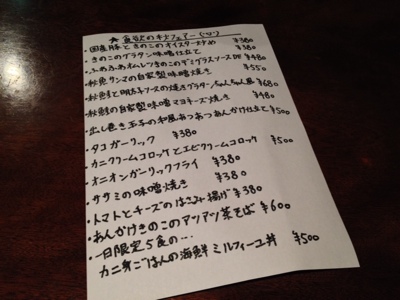 ★食欲の秋フェアー
・国産豚ときのこのオイスター炒め ¥380
・きのこのグラタン味噌仕立て ¥380
・ふわふわオムレツきのこのデミグラスソース ¥480
・秋魚サンマの自家製味噌焼き ¥550
・秋鮭と明太子ソースの焼きグラタン/ちゃんちゃん風 ¥680
・秋鮭の自家製味噌マヨネーズ焼き ¥480
・出し巻き玉子の和風あつあつあんかけ仕立て ¥500
・タコガーリック ¥380
・カニクリームコロッケとエビクリームコロッケ ¥500
・オニオンガーリックフライ ¥380
・ササミの味噌焼き ¥380
・トマトとチーズのはさみ揚げ ¥380
・あんかけきのこのアツアツ茶そば ¥600
・一日限定5食の…
カニ身ごはんの海鮮ミルフィーユ丼 ¥500